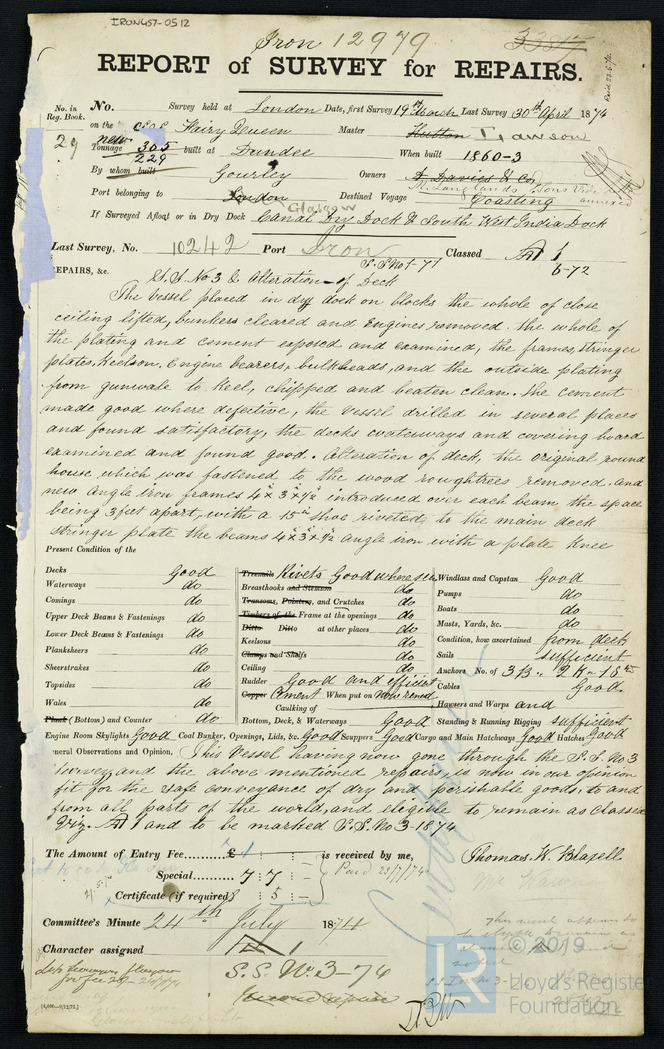 IRON457-0512
Iron 12979
3384
REPORT of SURVEY for REPAIRS.
No. in Reg. Book.
No. Survey held at London Date, first Survey 19th March Last Survey 30th April 1874
29 on the Fairy Queen Master Hutton Lawson
new Tonnage 305 229 built at Dundee When built 1860-3
By whom built Gourley Owners A Davies & Co
M. Langlands & Sons
Port belonging to London Glasgow Destined Voyage Coasting
If Surveyed Afloat or in Dry Dock Canal Dry Dock & South West India Dock
Last Survey, No. 10242 Port Iron Classed A 1
S.S No 1-71 6-72
REPAIRS, &c. S.S. No 3 & Alteration of Deck
The Vessel placed in dry dock on blocks the whole of close
ceiling lifted, bunkers cleared and Engines removed. the whole of
the plating and cement exposed and examined, the frames, stringer
plates, Keelson, Engine bearers, bulkheads, and the outside plating
from gunwale to Keel, chipped and beaten clean. the cement
made good where defective, the vessel drilled in several places
and found satisfactory, the decks waterways and covering board
examined and found good. Alteration of deck, the original round
house which was fastened to the wood roughtrees removed. and
new Angle iron frames 4 x 3 x ½ introduced over each beam the space
being 3 feet apart, with a 15 in shoe riveted to the main deck
stringer plate the beams 4 x 3 x ½ angle iron with a plate Knee
Present Condition of the
Decks Good
Waterways do
Comings do
Upper Deck Beams & Fastenings do
Lower Deck Beams & Fastenings do
Planksheers do
Sheerstrakes do
Topsides do
Wales do
Plank (Bottom) and Counter do
Treenails Rivets Good where seen
Breasthooks and Stemson do
Transoms, Pointers, and Crutches do
Timbers of the Frame at the openings do
Ditto Ditto at other places do
Keelsons do
Clamps and Shelfs do
Ceiling do
Rudder Good and efficient
Copper Cement When put on Now renewd
Caulking of
Bottom, Deck, & Waterways Good
Windlass and Capstan Good
Pumps do
Boats do
Masts, Yards, &c. do
Condition, how ascertained from deck
Sails sufficient
Anchors No. of 3 B., 2 K
Cables Good.
Hawsers and Warps and
Standing & Running Rigging sufficient
Engine Room Skylights Good Coal Bunker, Openings, Lids, &c. Good Scuppers Good Cargo and Main Hatchways Good Hatches Good
General Observations and Opinion, This Vessel having now gone through the S.S. No 3
survey and the above mentioned repairs, is now in our opinion
fit for the safe conveyance of dry and perishable goods, to and
from all parts of the world, and eligible to remain as Classed
Viz. A 1 and to be marked S.S. No 3-1874
The Amount of Entry Fee......... £ 1 : : is received by me,
Special ......... 7 : 7 : Paid 23/7/74
Certificate (if required) : 5 :
Thomas W. Blazell
Committee's Minute 24th July 1874
Character assigned A 1
S.S. No 3-74
This vessel appears to
© 2019
Lloyd's Register
Foundation